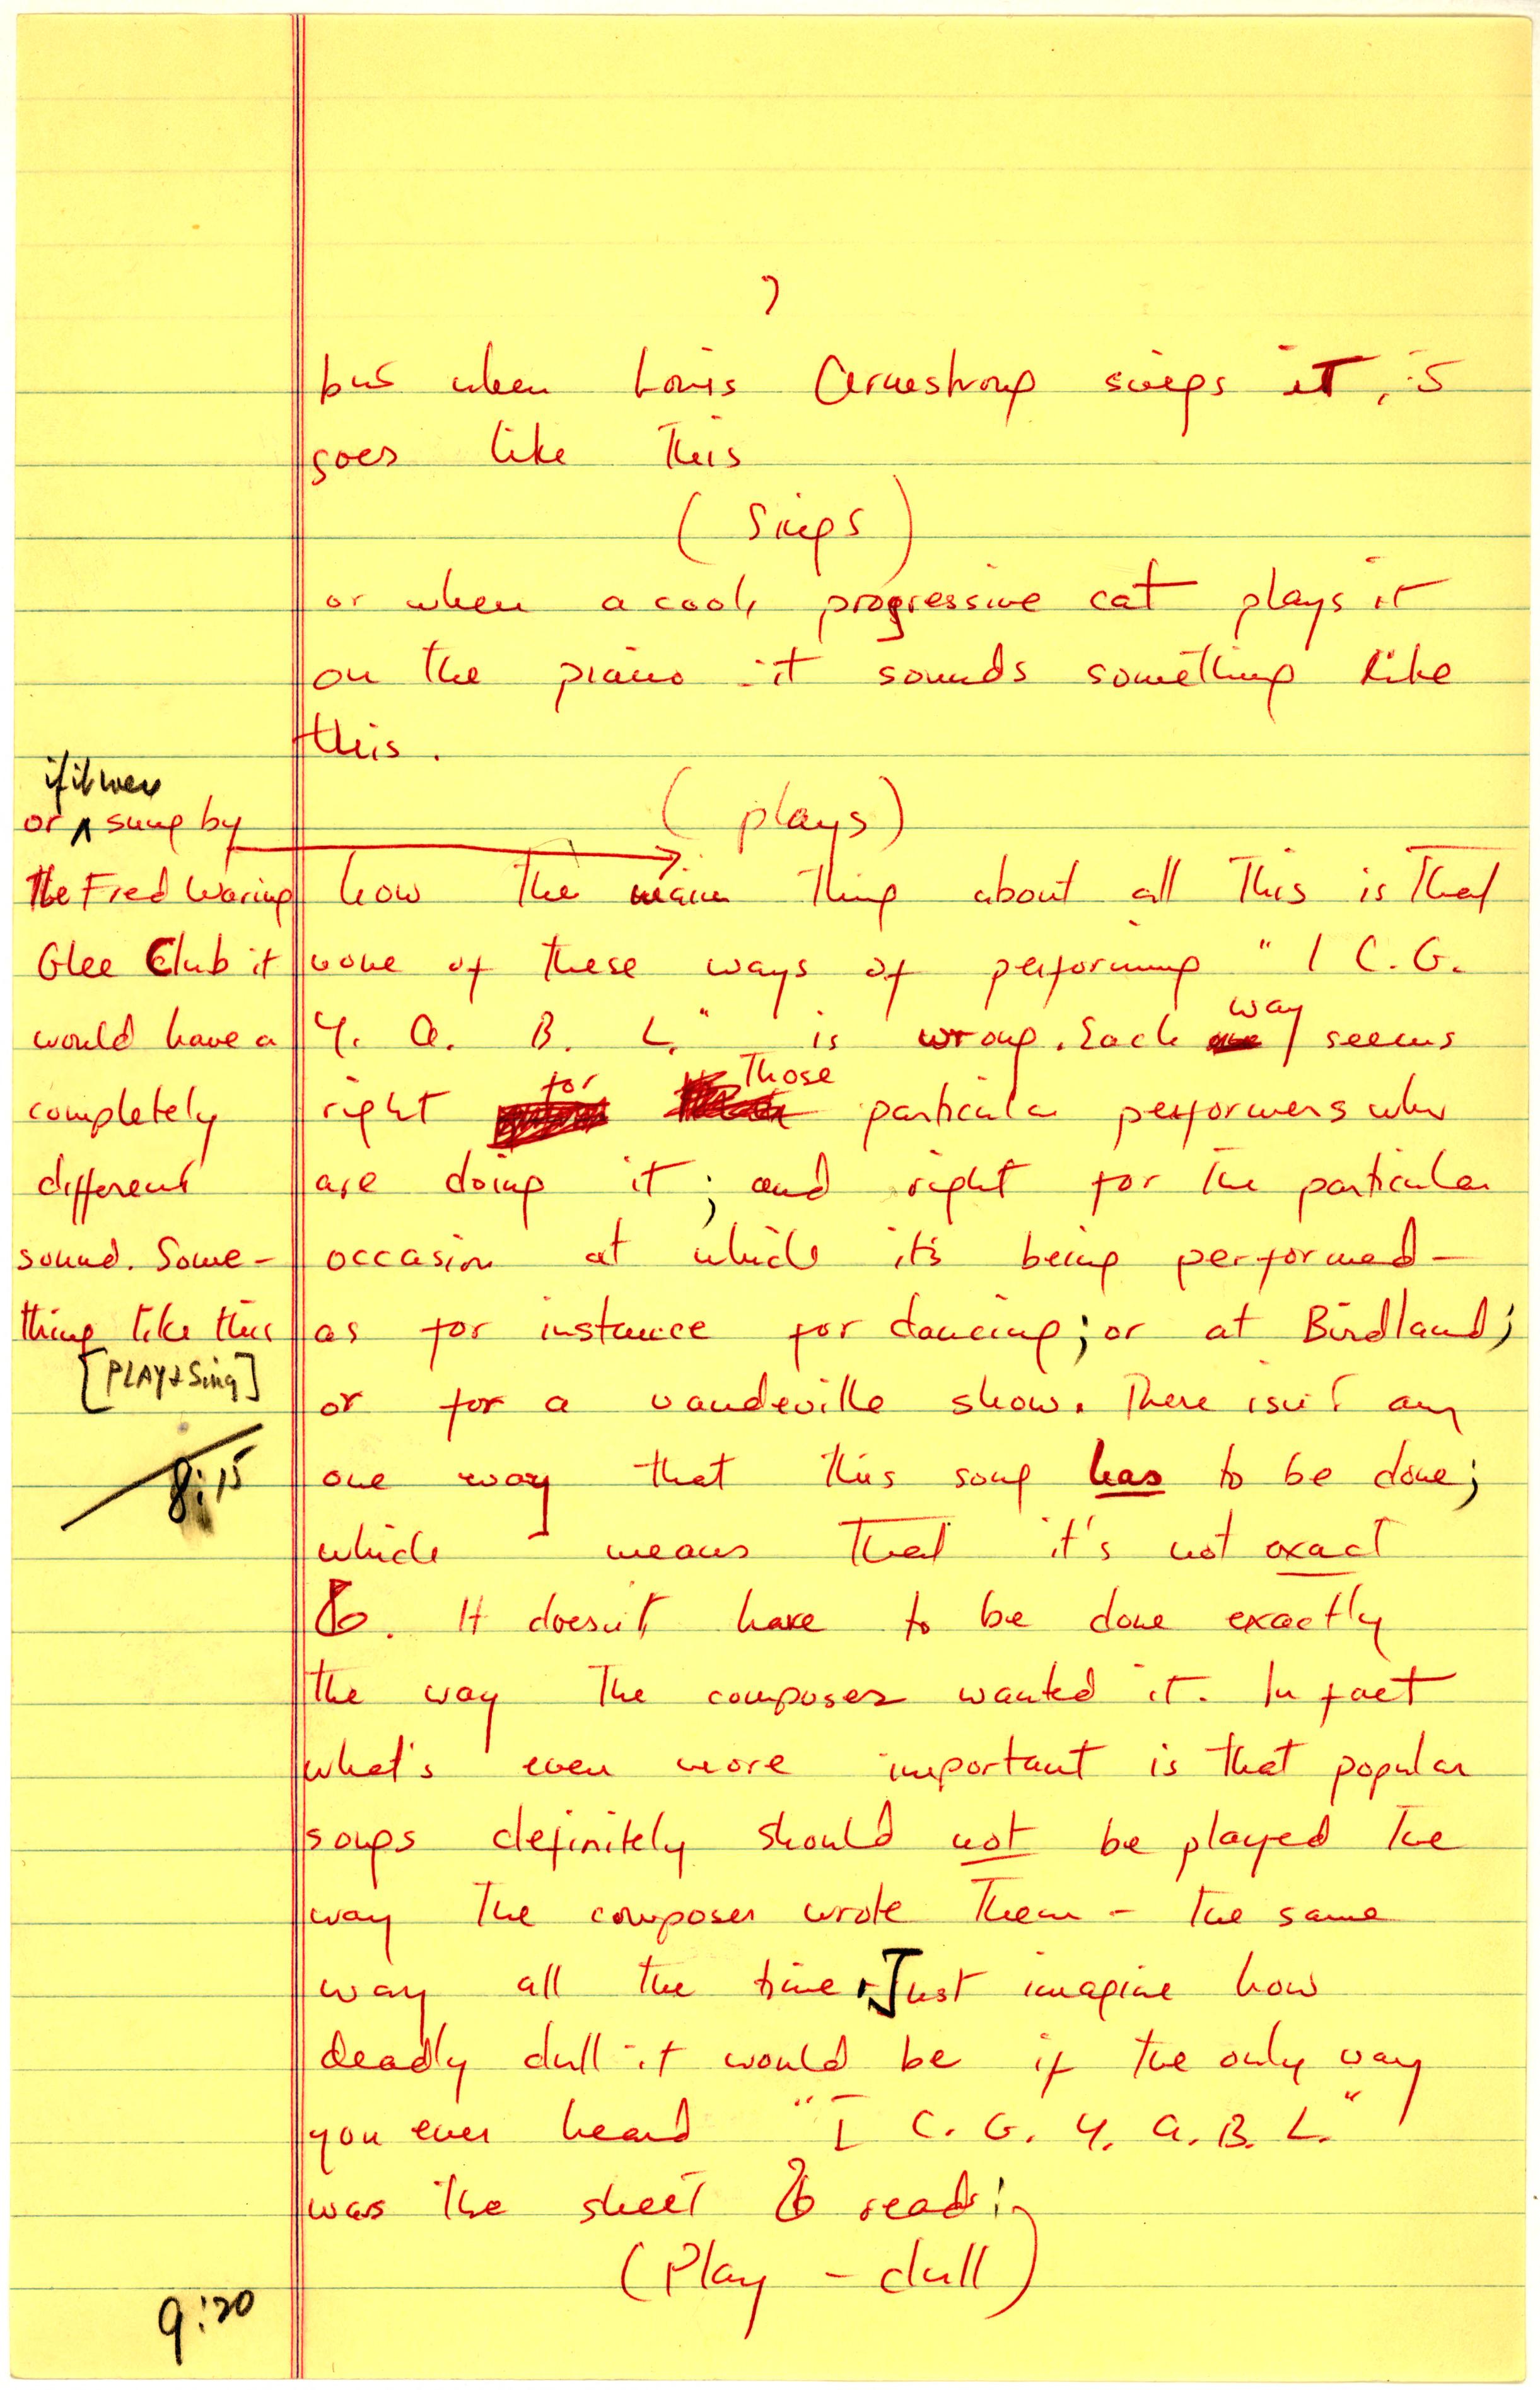 7
but when Louis Armstrong sings it, it
goes like this
(Sings)
or when a cool, progressive cat plays it
on the piano it sounds something like
this.
(plays)
if it were
or ^ sung by
the Fred Waring
Glee Club it
would have a
completely
different
sound. Some-
thing like this
[PLAY & Sing]
8:15
Now the main thing about all this is that
none of these ways of performing "I C. G.
Y. A. B. L." is wrong. Each way seems
right for those particular performers who
are doing it; and right for the particular
occasion at which it's being performed -
as for instance for dancing; or at Birdland;
or for a vaudeville show. There isn't any
one way that this song has to be done;
which means that it's not exact
. It doesn't have to be done exactly
the way the composer wanted it. In fact
what's even more important is that popular
songs definitely should not be played the
way the composer wrote them - the same
way all the time. Just imagine how
deadly dull it would be if the only way
you ever heard "I C. G. Y. A. B. L."
was the sheet reads:
(Play - dull)
9:20